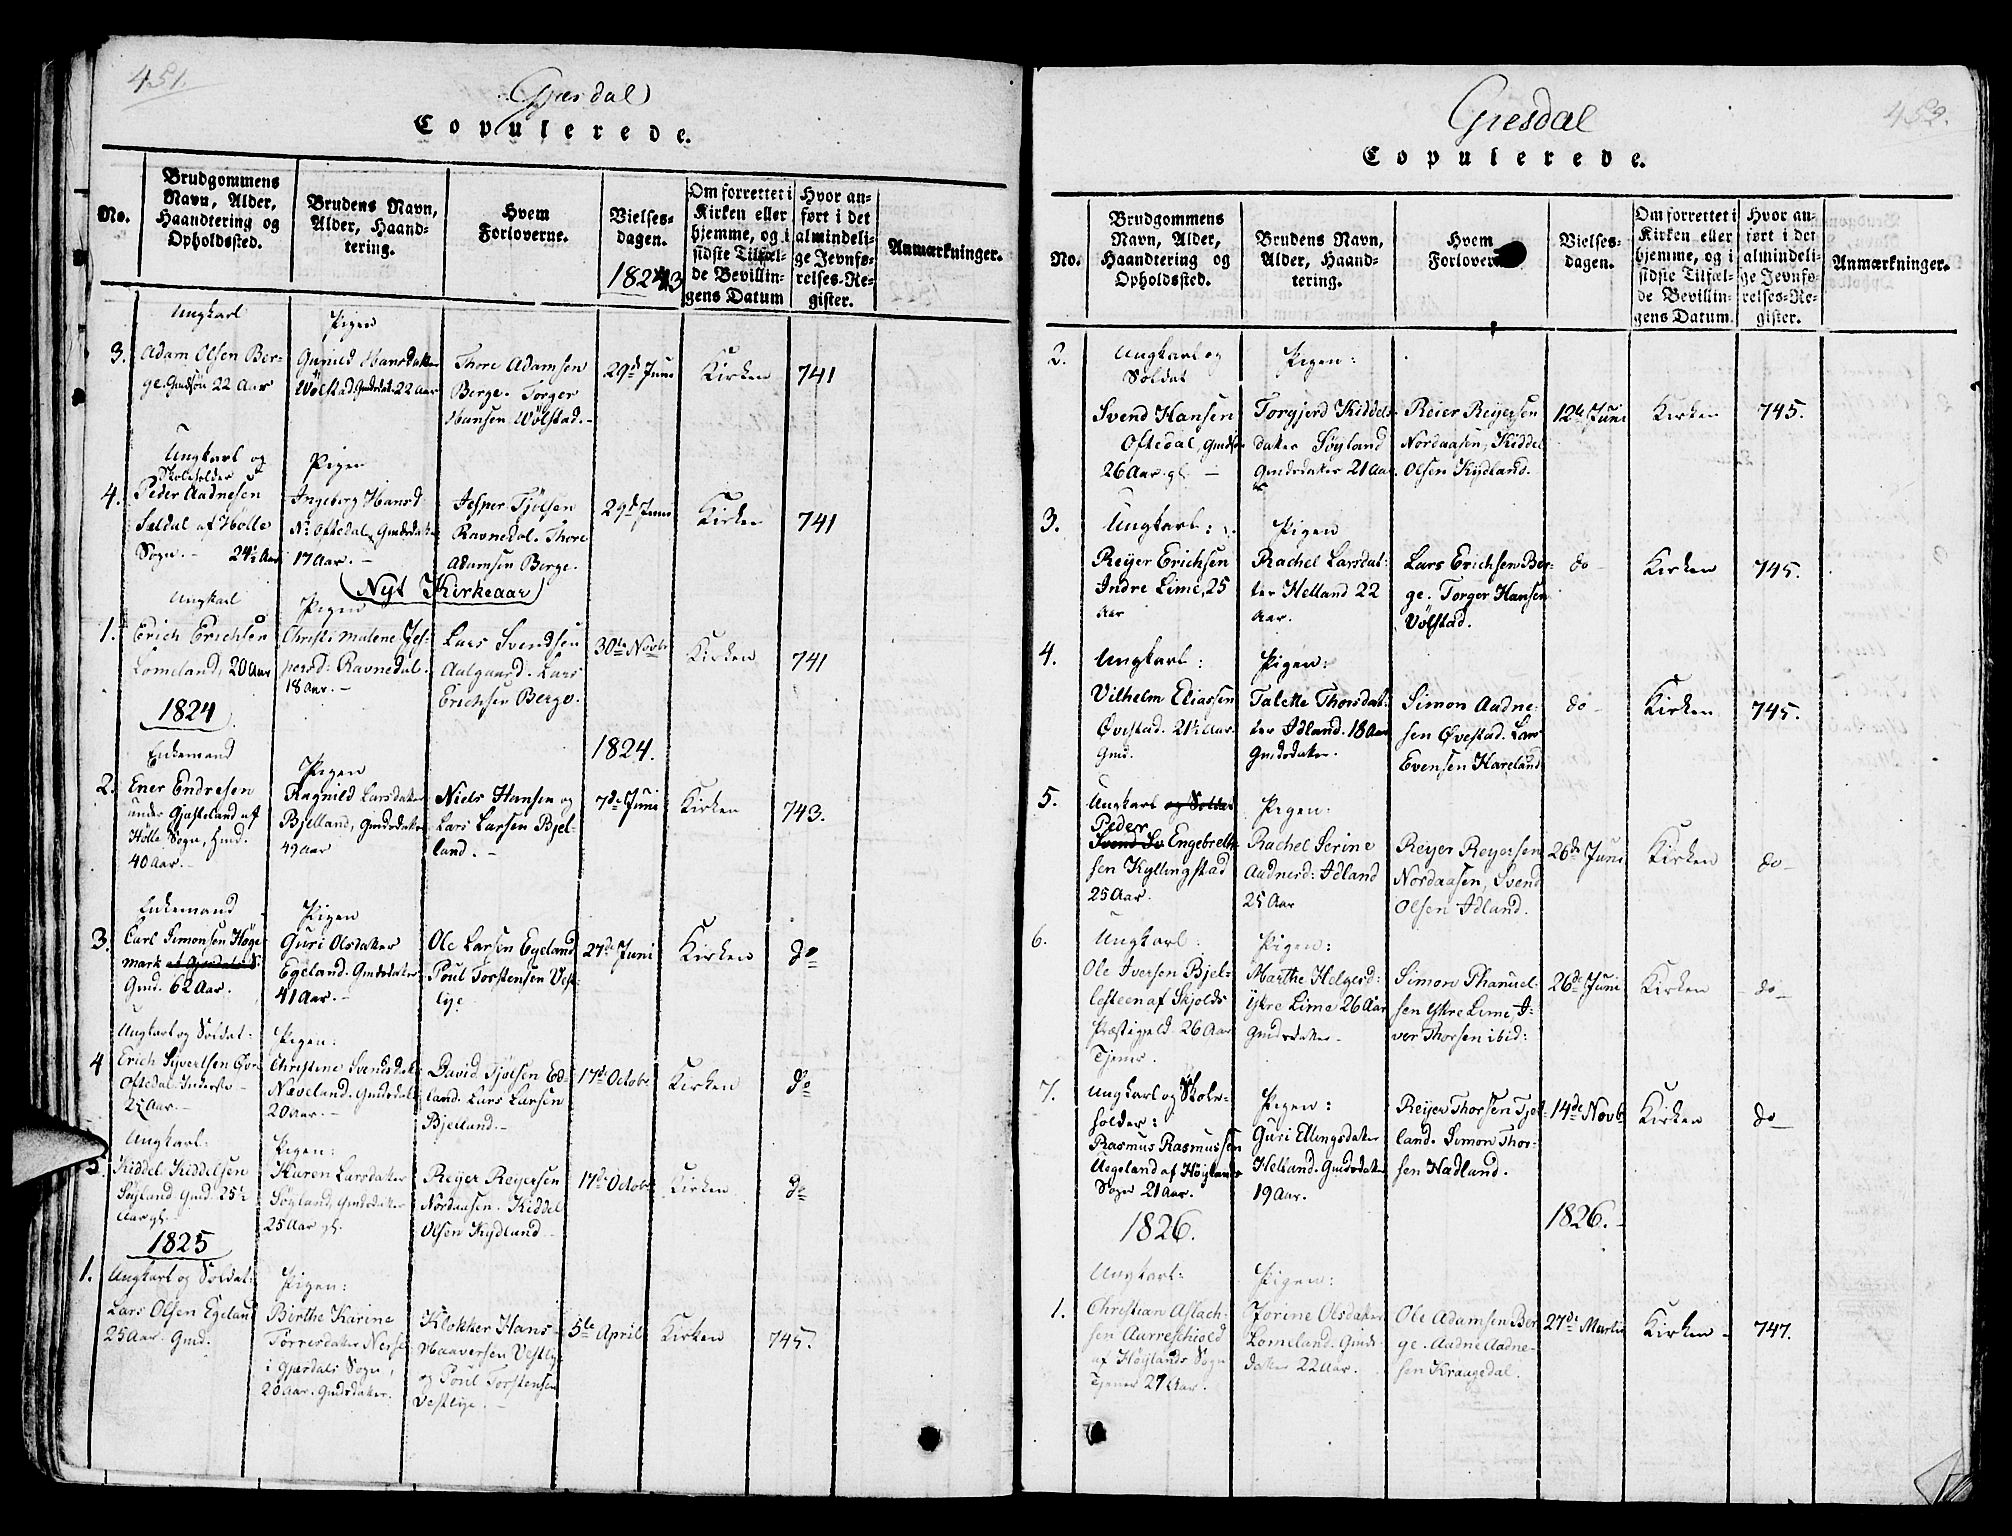 451.
Gjæsdal
Copulerede.
No.
Brudgommens Navn, Alder, Haandtering og Opholdssted.
Brudens Navn, Alder, Haandtering.
Hvem Forloverne.
Vielsesdagen.
Om forrettet i Kirken eller hjemme, og i sidste Tilfælde Bevillingens Datum
Hvor anført i det almindelige Jevnførelses-Register.
Anmærkninger.
1823
Ungkarl
Pigen
3. Adam Olsen Ber-
ge. Gmdsøn 22 Aar
Gunild Hansdatter
Wölstad. Gmdsdat. 22 Aar
Thore Adamsen
Berge. Torger
Hansen Wölstad. -
29d Juni
Kirken
741
Ungkarl og
Skoleholder
Pigen
4. Peder Aadnesen
Sældal af Hölle
Sogn. - 24½ Aar
Ingeborg Hansd
N. Oftedal, Gmdsdater
17 Aar. -
Jesper Tjölsen
Ravnedal. Thore
Adamsen Berge.
29d Juni
Kirken
741
Nyt Kirkeaar
Ungkarl
Pigen
1. Erich Erichsen
Lomeland, 20 Aar
Christi Malene Jes-
persd: Ravnedal.
18 Aar. -
Lars Svendsen
Aalgaard. Lars
Erichsen Berge.
30te Novbr
Kirken
741
1824
1824.
Enkemand
Pigen
2. Ener Endresen
under Gjesteland af
Hölle Sogn, Hmd.
40 Aar. -
Ragnild Larsdater
Bjelland, Gmdsdater
49 Aar
Niels Hansen og
Lars Larsen Bjel-
land. -
7de Juni
Kirken
743.
Enkemand
Pigen
3. Carl Simonsen Höge-
mark af Gjesdals S.
Gmd. 62 Aar.
Guri Olsdater
Egeland. Gmdsdater
41 Aar. -
Ole Larsen Egeland
Poul Torstensen Vest-
lye.
27de Juni
Kirken
do
Ungkarl og Soldat.
Pigen:
4 Erich Sivertsen Övr
Oftedal Inderste -
25 Aar. -
Christene Svendsdat
Næveland. Gmdsdat
20 Aar. -
David Tjölsen Ed-
land. Lars Larsen
Bjelland. -
17de Octobr
Kirken
do
Ungkarl.
Pigen:
5. Kiddel Kiddelsen
Söyland Gmd. 25½
Aar gl.
Karen Larsdater
Söyland, Gmdsdater
25 Aar gl.
Reyer Reyersen
Nordaasen. Kiddel
Olsen Kydland
17de Octobr
Kirken
do
1825
1. Ungkarl og Soldat:
Lars Olsen Egeland
25 Aar. Gmd.
Pigen:
Birthe Karine
Torresdater Nerse
i Gjæsdals Sogn,
20 Aar. Gmdsdater.
Klokker Hans
Haaversen Vestlye
og Poul Torstensen
Vestlye. -
5te April
Kirken
745.
452.
Giesdal
Copulerede.
No.
Brudgommens Navn, Alder, Haandtering og Opholdssted.
Brudens Navn, Alder, Haandtering.
Hvem Forloverne
Vielsesdagen.
Om forrettet i Kirken eller hjemme, og i sidste Tilfælde Bevillingens Datum.
Hvor anført i det almindelige Jevnførelses-Register.
Anmærkninger.
2. Ungkarl og
Soldat
Pigen:
Svend Hansen
Oftedal, Gmdsøn
26 Aar gl. -
Torgjerd Kiddels-
dater Söyland
Gmdsdater 21 Aar.
Reier Reyersen
Nordaasen, Kiddel
Olsen Kydland.
12te Juni
Kirken
745.
3. Ungkarl:
Pigen
Reyer Erichsen
Indre Lime, 25
Aar
Rachel Larsdat:
ter Helland 22
Aar.
Lars Erichsen Ber-
ge. Torger Hansen
Völstad.
do -
Kirken
745.
4. Ungkarl:
Pigen:
Vilhelm Eliassen
Övestad. 21½ Aar.
Gmd.
Talette Thorsdat-
ter Idland. 18 Aar
Gmdsdater.
Simon Aadne-
sen Övestad. Lars
Evensen Hareland
do -
Kirken
745.
5. Ungkarl og Soldat
Pigen:
Peder
Svend Sv Engebreth-
sen Kyllingstad
25 Aar.
Rachel Serine
Aadnersd: Idland
25 Aar
Reyer Reyersen
Nordaasen, Svend
Olsen Idland.
26de Juni
Kirken
do -
6. Ungkarl.
Pigen:
Ole Iversen Bjel-
lesteen af Skjolds
Præstigjeld. 26 Aar
Tjener.
Marthe Helgesd:
Yttre Lime 26 Aar
Gmdsdater -
Simon Phanuel-
sen Yttre Lime, I-
ver Thorsen ibid:
26de Juni
Kirken
do -
7. Ungkarl og Skole-
holder:
Pigen:
Rasmus Rasmussen
Uegeland af Höiglands
Sogn 21 Aar.
Guri Ellingsdater
Helland. Gmdsdater
19 Aar.
Reyer Thorsen Tjet-
land. Simon Thor-
sen Hadland.
14de Novb
Kirken
do -
1826.
1826.
Ungkarl:
Pigen:
1. Christian Aslach-
sen Aarreschiold
af Höylands Sogn
Tjener 27 Aar.
Jorine Olsdater
Lomeland. Gmds
dater 22 Aar.
Ole Adamsen Ber
ge. Aadne Aadne-
sen Kraagedal.
27de Martii
Kirken -
747.